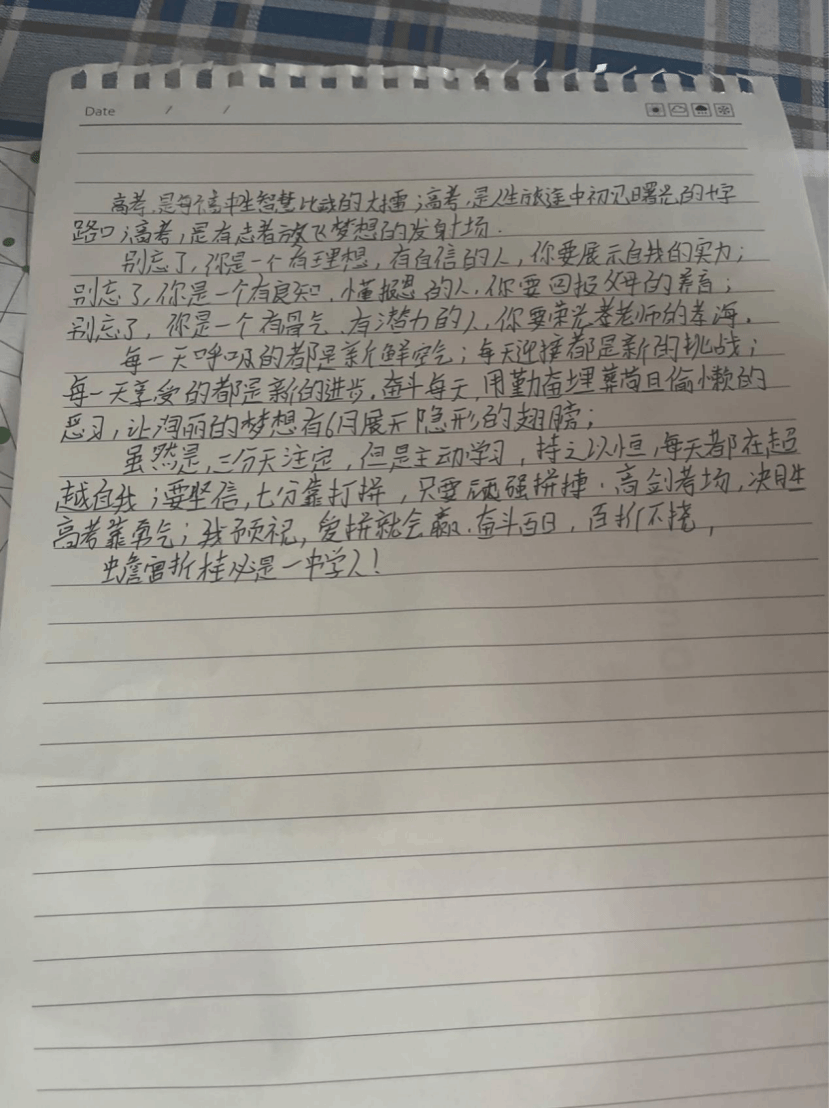 Date / /
高考,是每个高中生智慧比战的大擂;高考,是人生旅途中初见曙光的十字
路口;高考,是有志者放飞梦想的发射场.
别忘了,你是一个有理想,有自信的人,你要展示自我的实力;
别忘了,你是一个有良知,懂报恩的人,你要回报父母的养育;
别忘了,你是一个有骨气、有潜力的人,你要荣光老师的
每一天呼吸的都是新鲜空气;每天迎接都是新的挑战;
每一天享受的都是新的进步,奋斗每天,用勤奋埋葬苟且偷懒的
恶习,让绚丽的梦想有6月展开隐形的翅膀;
虽然是,三分天注定,但是主动学习,持之以恒,每天都在超
越自我;要坚信,七分靠打拼,只要顽强拼搏.亮剑考场,决胜
高考靠勇气;我预祝,爱拼就会赢.奋斗百日,百折不挠,
蟾宫折桂必是一中学人!